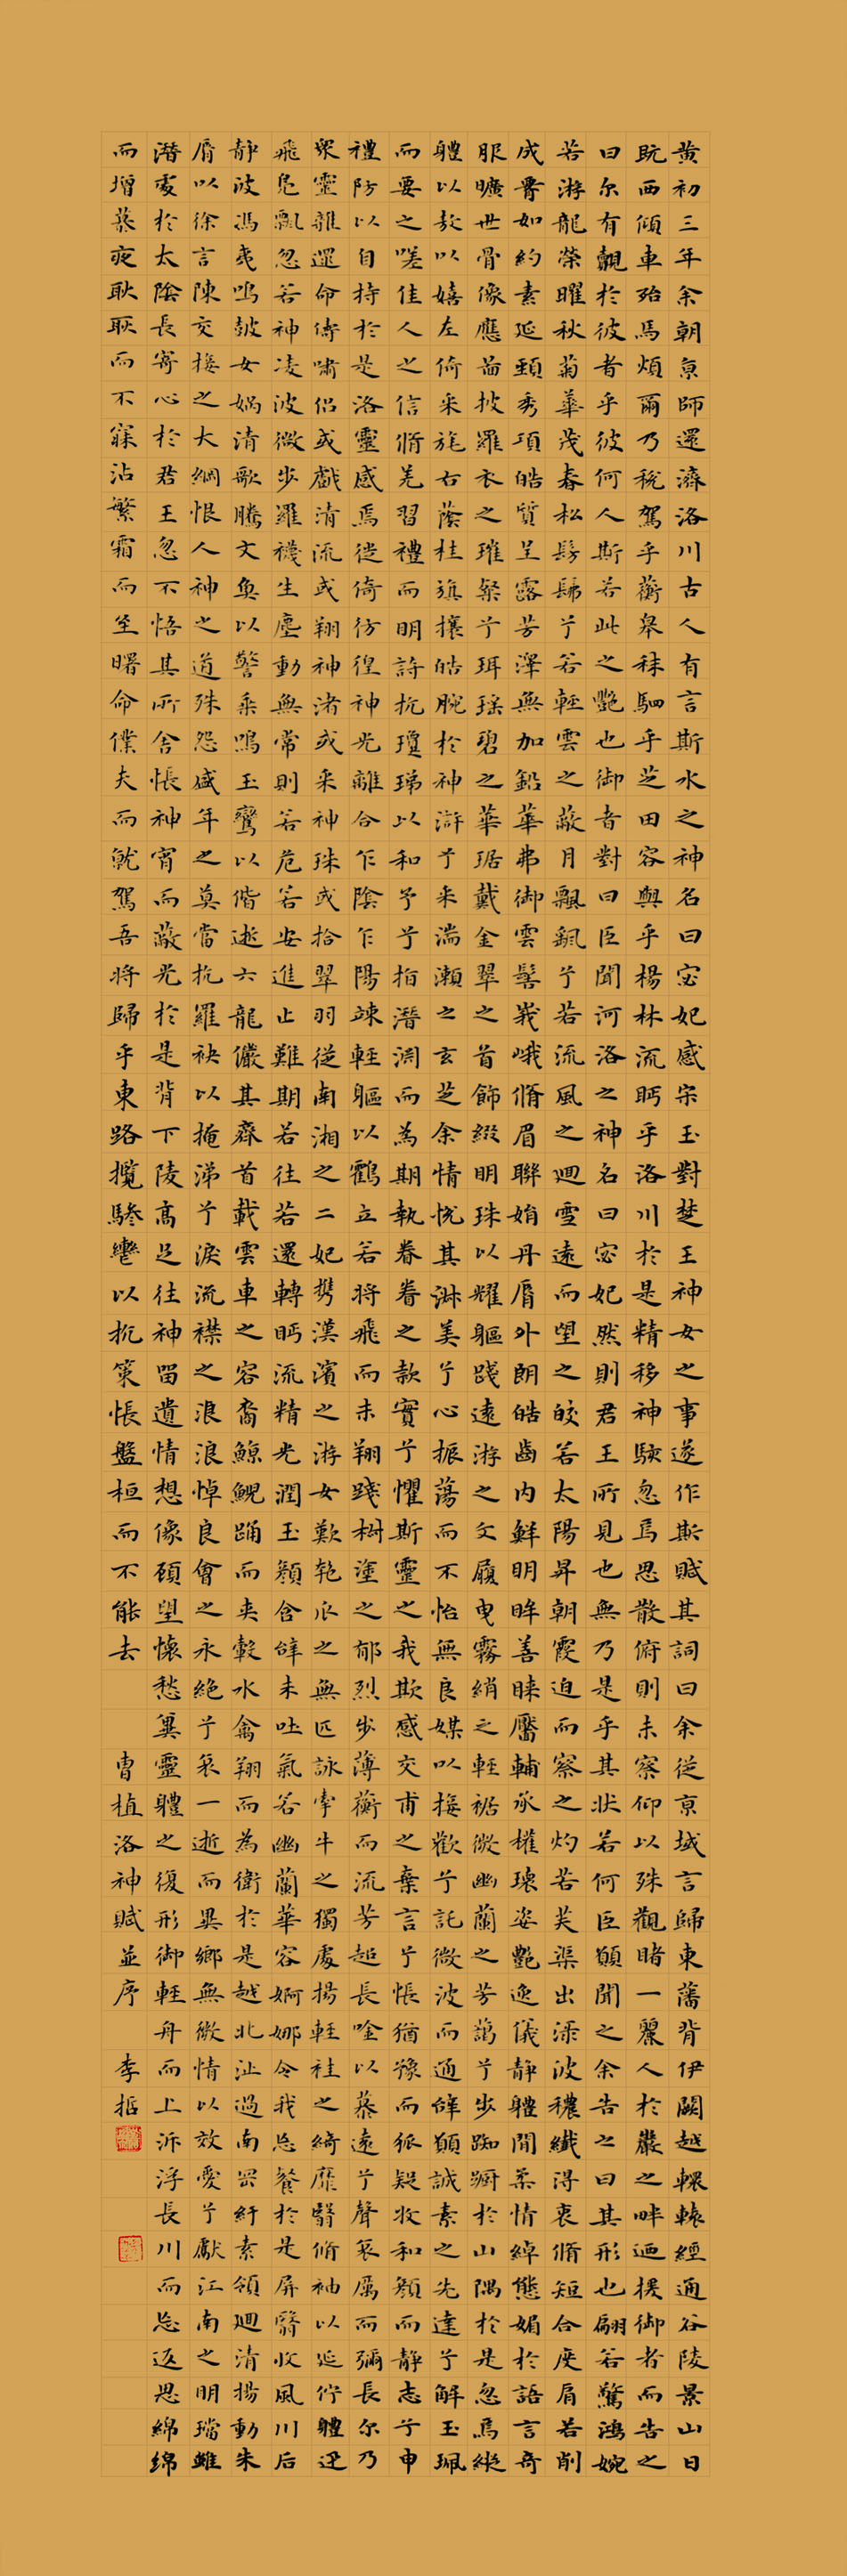 黄初三年余朝京師還濟洛川古人有言斯水之神名曰宓妃感宋玉對楚王神女之事遂作斯賦其詞曰余從京域言歸東藩背伊闕越轘轅經通谷陵景山日
既西傾車殆馬煩爾乃稅駕乎蘅皋秣駟乎芝田容與乎楊林流眄乎洛川於是精移神駭忽焉思散俯則未察仰以殊觀睹一麗人於巖之畔迺援御者而告之
曰尔有覿於彼者乎彼何人斯若此之艷也御者對曰臣聞河洛之神名曰宓妃然則君王所見也無乃是乎其狀若何臣願聞之余告之曰其形也翩若驚鴻婉
若游龍榮曜秋菊華茂春松髣髴兮若輕雲之蔽月飄飖兮若流風之迴雪遠而望之皎若太陽昇朝霞迫而察之灼若芙渠出淥波穠纖得衷脩短合度肩若削
成腰如約素延頸秀項皓質呈露芳澤無加鉛華弗御雲髻峩峨脩眉聯娟丹脣外朗皓齒內鮮明眸善睞靨輔承權瓌姿艷逸儀靜體閒柔情綽態媚於語言奇
服曠世骨像應啚披羅衣之璀粲兮珥瑶碧之華琚戴金翠之首飾綴明珠以耀軀踐遠游之文履曳霧綃之輕裾微幽蘭之芳藹兮步踟躕於山隅於是忽焉縱
體以敖以嬉左倚采旄右蔭桂旗攘皓腕於神滸兮采湍瀨之玄芝余情悅其淑美兮心振蕩而不怡無良媒以接歡兮託微波而通辭願誠素之先達兮解玉珮
而要之嗟佳人之信脩羌習禮而明詩抗瓊珶以和予兮指潛淵而為期執眷眷之款實兮懼斯靈之我欺感交甫之棄言兮悵猶豫而狐疑收和顏而靜志兮申
禮防以自持於是洛靈感焉徙倚彷徨神光離合乍陰乍陽竦輕軀以鶴立若將飛而未翔踐椒塗之郁烈步蘅薄而流芳超長唫以慕遠兮聲哀厲而彌長尔乃
衆靈雜遝命儔嘯侶或戲清流或翔神渚或采神珠或拾翠羽從南湘之二妃攜漢濱之游女歎匏瓜之無匹詠牽牛之獨處揚輕袿之綺靡翳脩袖以延佇體迅
飛鳧飄忽若神凌波微步羅襪生塵動無常則若危若安進止難期若往若還轉眄流精光潤玉顏含辭未吐氣若幽蘭華容婀娜令我忘餐於是屏翳收風川后
靜波馮夷鳴鼓女媧清歌騰文魚以警乘鳴玉鸞以偕逝六龍儼其齊首載雲車之容裔鯨鯢踊而夾轂水禽翔而為衛於是越北沚過南岡紆素領迴清揚動朱
脣以徐言陳交接之大綱恨人神之道殊怨盛年之莫當抗羅袂以掩涕兮淚流襟之浪浪悼良會之永絕兮哀一逝而異鄉無微情以效愛兮獻江南之明璫雖
潛處於太陰長寄心於君王忽不悟其所舍悵神宵而蔽光於是背下陵高足往神留遺情想像顧望懷愁冀靈體之復形御輕舟而上泝浮長川而忘返思綿綿
而增慕夜耿耿而不寐沾繁霜而至曙命僕夫而就駕吾將歸乎東路攬騑轡以抗策悵盤桓而不能去
曹植洛神賦並序 李